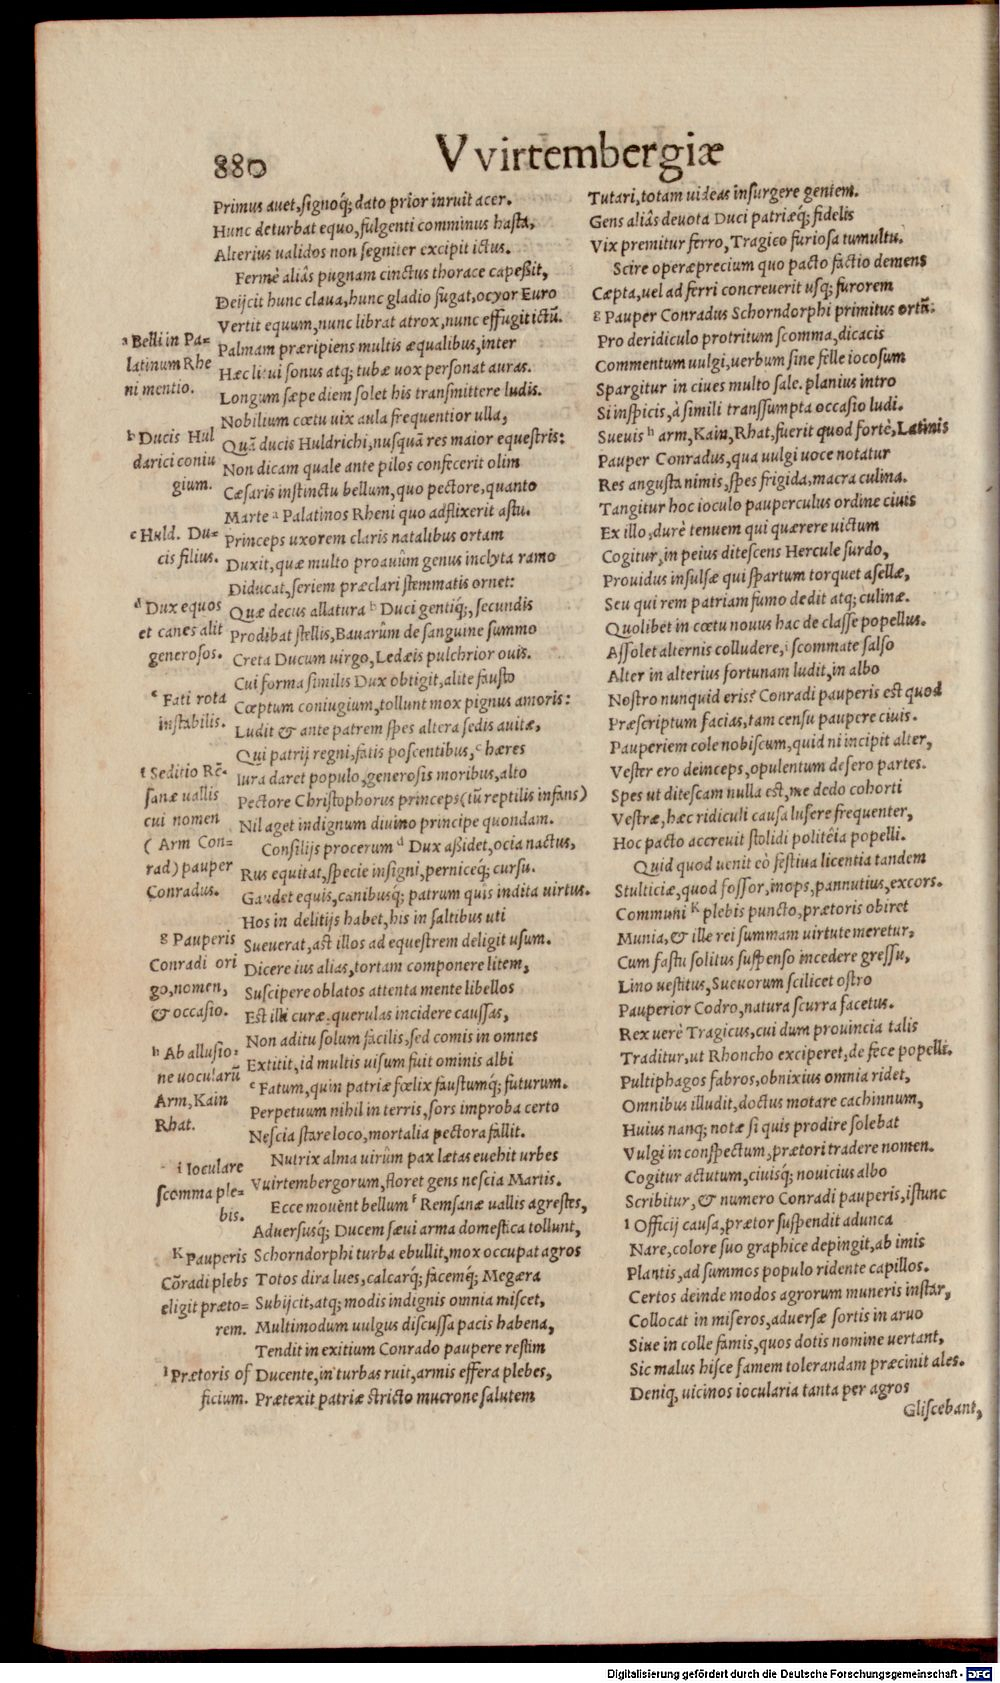 880
Vvirtembergiæ
Primus auet, signoq́; dato prior inruit acer.
Hunc deturbat equo, fulgenti comminus hasta,
Alterius ualidos non segniter excipit ictus.
Fermè aliâs pugnam cinctus thorace capeßit,
Deijcit hunc claua, hunc gladio fugat, ocyor Euro
Vertit equum, nunc librat atrox, nunc effugit ictũ.
Palmam præripiens multis æqualibus, inter
Hæc litui sonus atq; tubæ uox personat auras.
Longum sæpe diem solet his transmittere ludis.
Nobilium cœtu uix aula frequentior ulla,
Quã ducis Huldrichi, nusquã res maior equestris:
Non dicam quale ante pilos confecerit olim
Cæsaris instinctu bellum, quo pectore, quanto
Marte ᵃ Palatinos Rheni quo adflixerit astu.
Princeps uxorem claris natalibus ortam
Duxit, quæ multo proauûm genus inclyta ramo
Diducat, seriem præclari stemmatis ornet:
Quæ decus allatura ᵇ Duci gentiq́;, secundis
Prodibat stellis, Bauarûm de sanguine summo
Creta Ducum uirgo, Ledæis pulchrior ouis.
Cui forma similis Dux obtigit, alite fausto
Cœptum coniugium, tollunt mox pignus amoris:
Ludit & ante patrem spes altera sedis auitæ,
Qui patrij regni, fatis poscentibus, ᶜ hæres
Iura daret populo, generosis moribus, alto
Pectore Christophorus princeps (iũ reptilis infans)
Nil aget indignum diuino principe quondam.
Consilijs procerum ᵈ Dux aßidet, ocia nactus,
Rus equitat, specie insigni, perniceq́; cursu.
Gaudet equis, canibusq́; patrum quis indita uirtus.
Hos in delitijs habet, his in saltibus uti
Sueuerat, ast illos ad equestrem deligit usum.
Dicere ius alias, tortam componere litem,
Suscipere oblatos attenta mente libellos
Est illi curæ, querulas incidere caussas,
Non aditu solum facilis, sed comis in omnes
Extitit, id multis uisum fuit ominis albi
ᵉ Fatum, quin patriæ fœlix faustumq́; futurum.
Perpetuum nihil in terris, sors improba certo
Nescia stare loco, mortalia pectora fallit.
Nutrix alma uirûm pax lætas euehit urbes
Vuirtembergorum, floret gens nescia Martis.
Ecce mouent bellum ᶠ Remsanæ uallis agrestes,
Aduersusq́; Ducem sæui arma domestica tollunt,
Schorndorphi turba ebullit, mox occupat agros
Totos dira lues, calcarq́; facemq́; Megæra
Subijcit, atq; modis indignis omnia miscet,
Multimodum uulgus discussa pacis habena,
Tendit in exitium Conrado paupere restim
Ducente, in turbas ruit, armis effera plebes,
Prætexit patriæ stricto mucrone salutem
ᵃ Belli in Pa-
latinum Rhe
ni mentio.
ᵇ Ducis Hul
darici coniu
gium.
ᶜ Huld. Du-
cis filius.
ᵈ Dux equos
et canes alit
generosos.
ᵉ Fati rota
instabilis.
ᶠ Seditio Rẽ-
sanæ uallis
cui nomen
( Arm Con-
rad) pauper
Conradus.
ᵍ Pauperis
Conradi ori
go, nomen,
& occasio.
ʰ Ab allusio-
ne uocularũ
Arm, Kain
Rhat.
ⁱ Ioculare
scomma ple-
bis.
ᴷ Pauperis
Cõradi plebs
eligit præto-
rem.
ˡ Prætoris of
ficium.
Tutari, totam uideas insurgere gentem.
Gens aliâs deuota Duci patriæq́; fidelis
Vix premitur ferro, Tragico furiosa tumultu.
Scire operæprecium quo pacto factio demens
Cæpta, uel ad ferri concreuerit usq; furorem
ᵍ Pauper Conradus Schorndorphi primitus ortũ:
Pro deridiculo protritum scomma, dicacis
Commentum uulgi, uerbum sine felle iocosum
Spargitur in ciues multo sale. planius intro
Si inspicis, à simili transsumpta occasio ludi.
Sueuis ʰ arm, Kain, Rhat, fuerit quod fortè, Latinis
Pauper Conradus, qua uulgi uoce notatur
Res angusta nimis, spes frigida, macra culina.
Tangitur hoc ioculo pauperculus ordine ciuis
Ex illo, durè tenuem qui quærere uictum
Cogitur, in peius ditescens Hercule surdo,
Prouidus insulsæ qui spartum torquet asellæ,
Seu qui rem patriam fumo dedit atq; culinæ.
Quolibet in cœtu nouus hac de classe popellus.
Assolet alternis colludere, ⁱ scommate salso
Alter in alterius fortunam ludit, in albo
Nostro nunquid eris? Conradi pauperis est quod
Præscriptum facias, tam censu paupere ciuis.
Pauperiem cole nobiscum, quid ni incipit alter,
Vester ero deinceps, opulentum desero partes.
Spes ut ditescam nulla est, me dedo cohorti
Vestræ, hæc ridiculi causa lusere frequenter,
Hoc pacto accreuit stolidi politêia popelli.
Quid quod uenit eò festiua licentia tandem
Stulticiæ, quod fossor, inops, pannutius, excors.
Communi ᴷ plebis puncto, prætoris obiret
Munia, & ille rei summam uirtute meretur,
Cum fastu solitus suspenso incedere gressu,
Lino uestitus, Sueuorum scilicet ostro
Pauperior Codro, natura scurra facetus.
Rex uerè Tragicus, cui dum prouincia talis
Traditur, ut Rhoncho exciperet, de fece popelli.
Pultiphagos fabros, obnixius omnia ridet,
Omnibus illudit, doctus motare cachinnum,
Huius nanq; notæ si quis prodire solebat
Vulgi in conspectum, prætori tradere nomen.
Cogitur actutum, ciuisq́; nouicius albo
Scribitur, & numero Conradi pauperis, istunc
ˡ Officij causa, prætor suspendit adunca
Nare, colore suo graphice depingit, ab imis
Plantis, ad summos populo ridente capillos.
Certos deinde modos agrorum muneris instar,
Collocat in miseros, aduersæ sortis in aruo
Siue in colle famis, quos dotis nomine uertant,
Sic malus hisce famem tolerandam præcinit ales.
Deniq, uicinos iocularia tanta per agros
Gliscebant,
Digitalisierung gefördert durch die Deutsche Forschungsgemeinschaft - DFG